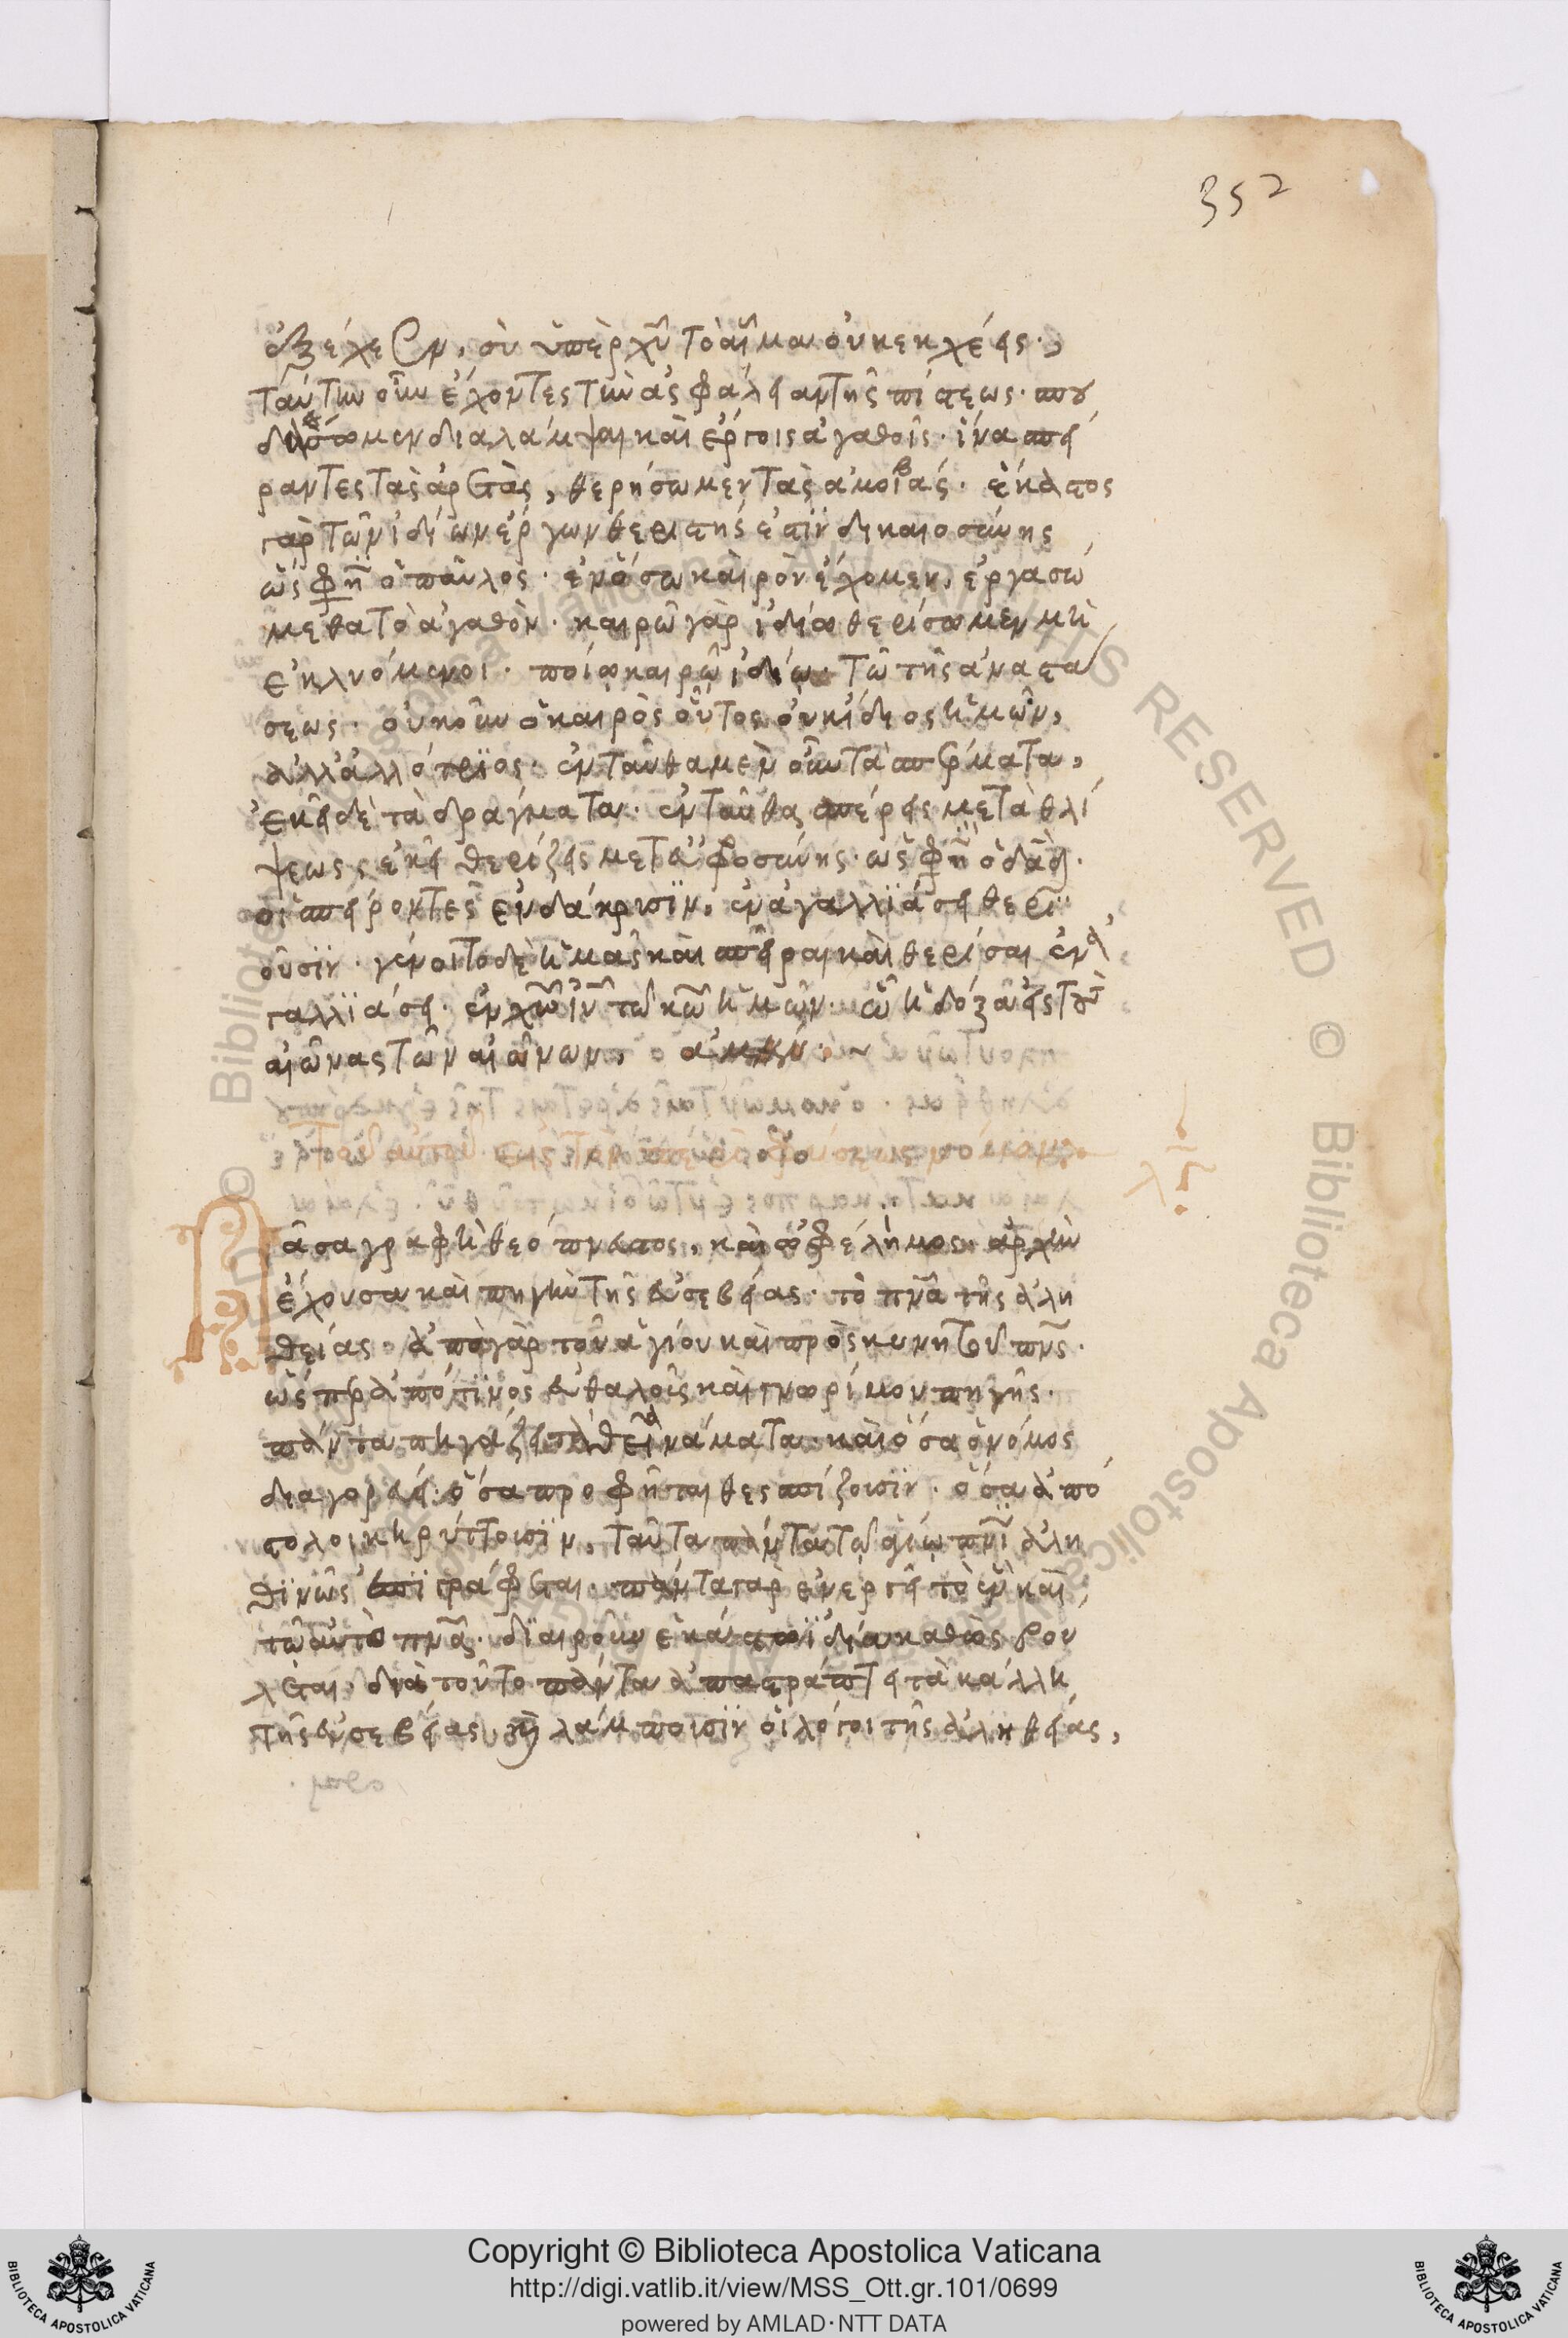 352
ἐξέχεεν, σὺ ὑπὲρ χῦ τὸ αἷμα οὐκ ἐκχέεις.,
ταύτην οὖν ἔχοντες τὴν ἀσφάλειαν τῆς πίστεως. σπου
δάσωμεν διαλάμψαι καὶ ἔργοις ἀγαθοῖς. ἵνα σπεί
ραντες τὰς ἀρετὰς, θερήσωμεν τὰς ἀμοιβάς. ἕκαστος
γὰρ τῶν ἰδίων ἔργων θεριστής ἐστϊν δικαιοσύνης
ὥς φη̃ ὁ παῦλος. ἐν ὅσω καιρὸν ἔχομεν, ἐργασώ
μεθα τὸ ἀγαθὸν. καιρῶ γὰρ ἰδίω θερίσωμεν μὴ
ἐκλυόμενοι. ποίω καιρῶ ἰδίω. τῶ τῆς ἀναστά
σεως. οὐκοῦν ὁ καιρὸς οὗτος οὐκ ἴδιος ἡμῶν,
ἀλλ' ἀλλότριος. ἐνταῦθα μὲν οὖν τὰ σπέρματα,
ἐκεῖ δὲ τὰ δράγματα. ἐνταῦθα σπέρεις μετὰ θλί
ψεως, ἐκεῖ θερίζεις μετ' εὐφροσύνης. ὡς φη̃ ὁ δᾶδ.
οἱ σπείροντες ἐν δάκρυσϊν, ἐν ἀγαλλϊάσει θερι
οῦσϊν. γένοιτο δὲ ἡμᾶς καὶ σπεῖραι καὶ θερίσαι ἐν ἀ
γαλλϊάσει. ἐν χω̃ ἰυ̃ τῶ κω̃ ἡμῶν. ὧ ἡ δόξα εἰς τοὺς
αἰῶνας τῶν αἰώνων, ἀμήν.
λζ
Πᾶσα γραφὴ θεόπνευστος, καὶ ὠφέλημος. ἀρχὴν
ἔχουσα καὶ πηγὴν τῆς εὐσεβείας. τὸ πνᾶ τῆς ἀλη
θείας. ἀπὸ γὰρ τοῦ ἁγίου καὶ προσκυνητοῦ πνς.
ὥσπερ ἀπό τϊνος εὐθαλοῖς καὶ γνωρίμου πηγῆς.
πάντα πηγάζει τὰ θεῖα νάματα. καὶ ὅσα ὁ νόμος
διαγορεύει. ὅσα προφῆται θεσπίζουσϊν. ὅσα ἀπό
στολοι κηρύττουσϊν, ταῦτα πάντα τῶ ἁγίω πνϊ ἀλη
θϊνῶς ἐπϊγράφεται. πάντα γὰρ ἐνεργεῖ τὸ ἓν καὶ
τῶ αὐτὸ πνᾶ. δϊαιροῦν ἑκάστω ἰδία καθὼς βού
λεται, διὰ τοῦτο πάντα ἀπαστράπτει τὰ κάλλη
τῆς εὐσεβείας, κὶ λάμπουσϊν οἱ λόγοι τῆς ἀληθείας,
Copyright © Biblioteca Apostolica Vaticana
http://digi.vatlib.it/view/MSS_Ott.gr.101/0699
powered by AMLAD·NTT DATA